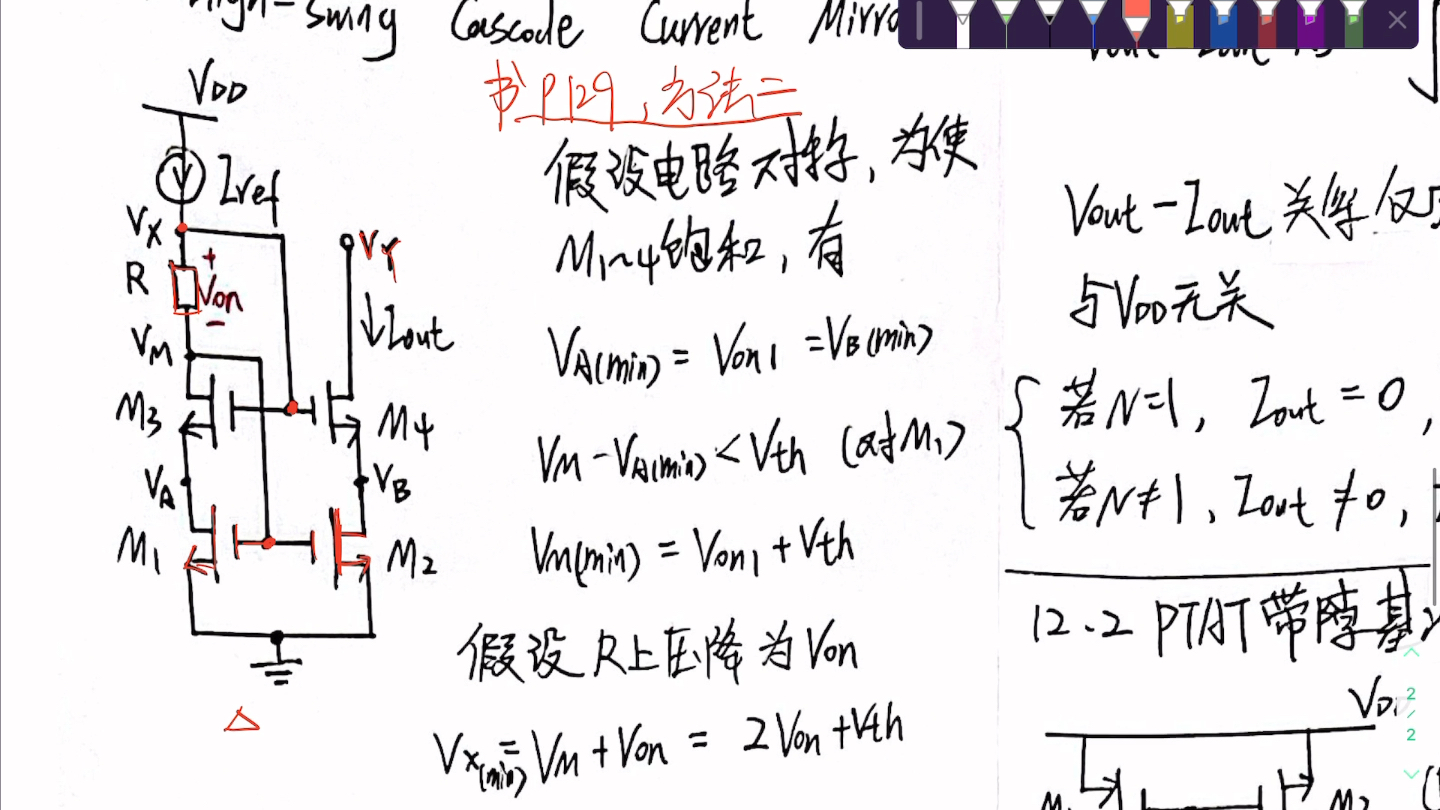 High-Swing Cascode Current Mirro
书P129,方法二
VDD
Iref
VX
R
+
Von
-
VM
VY
↓Iout
M3
M4
VA
VB
M1
M2
△
假设电路对称,为使
M1~4饱和,有
VA(min) = Von1 =VB(min)
VM-VA(min)<Vth (对M1)
VM(min) = Von1+Vth
假设 R上压降为Von
VX(min) = VM+Von = 2Von+Vth
Vout-Iout 关系仅与
与VDD无关
若N=1, Iout=0,
若N≠1, Iout≠0,
12.2 PTAT带隙基
VD
M1
M2
2
/
2